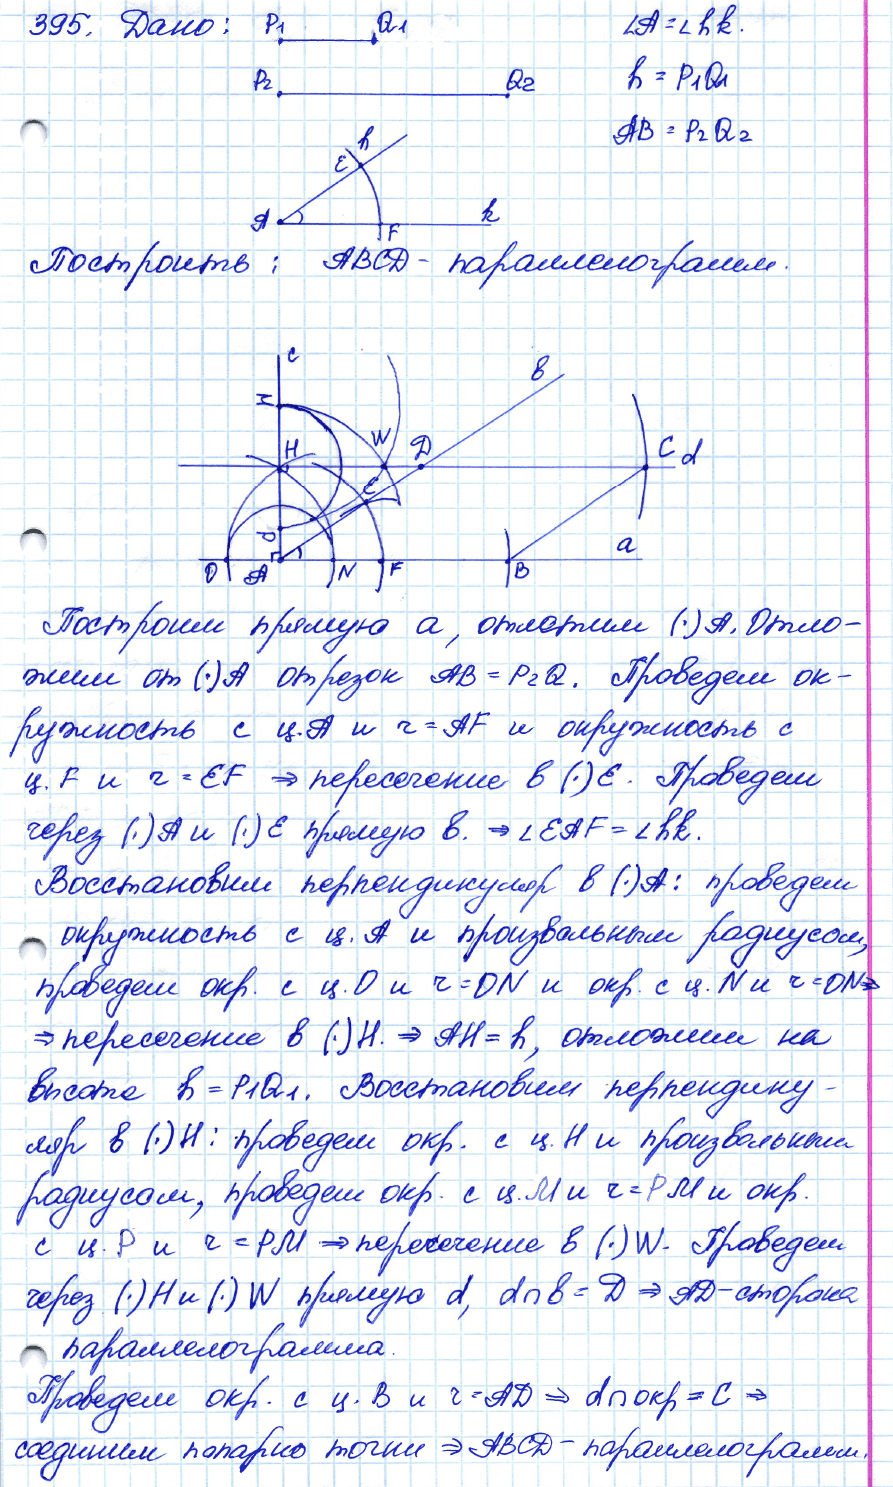 395. Дано: P₁ Q₁ ∠A = ∠hk.
P₂ Q₂ h = P₁Q₁
AB = P₂Q₂
h
E
A F k
Построить: ABCD - параллелограмм.
c
b
M
H W D C d
E
a
O A N F B
Построим прямую a, отметим (·)A. Отло-
жим от (·)A отрезок AB = P₂Q. Проведем ок-
ружность с ц.A и r = AF и окружность с
ц.F и r = EF ⇒ пересечение в (·)E. Проведем
через (·)A и (·)E прямую b. ⇒ ∠EAF = ∠hk.
Восстановим перпендикуляр в (·)A: проведем
окружность с ц.A и произвольным радиусом,
проведем окр. с ц.O и r = ON и окр. с ц.N и r = ON ⇒
⇒ пересечение в (·)H. ⇒ AH = h, отложим на
высоте h = P₁Q₁. Восстановим перпендику-
ляр в (·)H: проведем окр. с ц.H и произвольным
радиусом, проведем окр. с ц.M и r = PM и окр.
с ц.P и r = PM ⇒ пересечение в (·)W. Проведем
через (·)H и (·)W прямую d, d∩b = D ⇒ AD - сторона
параллелограмма.
Проведем окр. с ц.B и r = AD ⇒ d∩окр = C ⇒
соединим попарно точки ⇒ ABCD - параллелограмм.